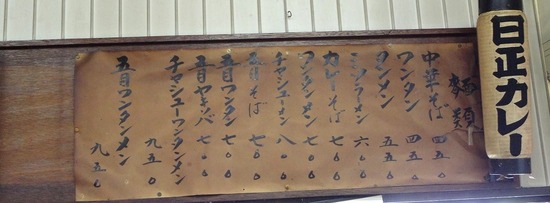 日正カレー
麺類
中華そば 四五〇
ワンタン 四五〇
タンメン 五五〇
ミソラーメン 六〇〇
カレーそば 七〇〇
ワンタンメン 七〇〇
チャシューメン 八〇〇
五目そば 七〇〇
五目ワンタン 七〇〇
五目ヤキソバ 七〇〇
チャシューワンタンメン 九五〇
五目ワンタンメン 九五〇